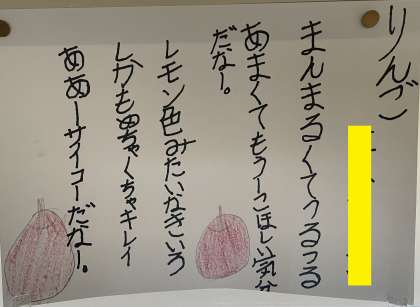 りんご
まんまるくてつるつる
あまくてもう一こほしい気分
だなー。
レモン色みたいなきいろ
しかもめちゃくちゃキレイ
ああーサイコーだなー。